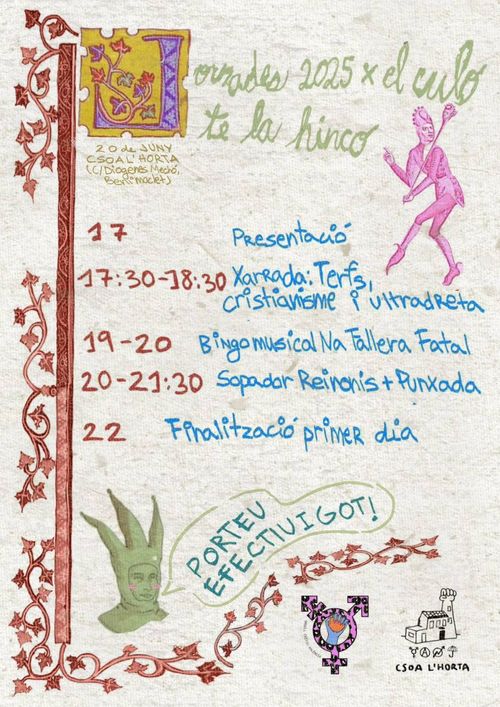 Jornades 2025 x el culo
te la hinco
20 de JUNY
CSOA L'HORTA
(C/Diógenes
Benimaclet)
17 Presentació
17:30-18:30 Xarrada: Terfs,
cristianisme i ultradreta
19-20 Bingo musical Na Fallera Fatal
20-21:30 Sopador Reinonis + Punxada
22 Finalització primer dia
PORTEU
EFECTIU I GOT!
CSOA L'HORTA